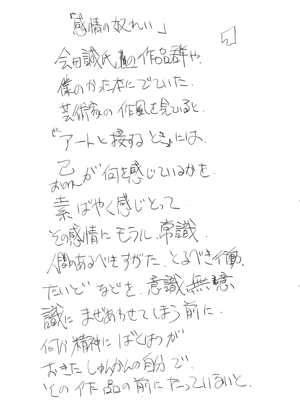 「感情の奴れい」
会田誠氏の作品群や、
僕のかった本にでていた、
芸術家の作風を見ていると、
『アートと接するとき』には、
己が何を感じているかを、
おのれ
素ばやく感じとって
その感情にモラル、常識、
人間のあるべきすがた、とるべき行動、
たいどなどを、意識無意
識にまぜあわせてしまう前に、
何か精神にばくはつが
おきたしゅんかんの自分で、
その作品の前にたっていないと、